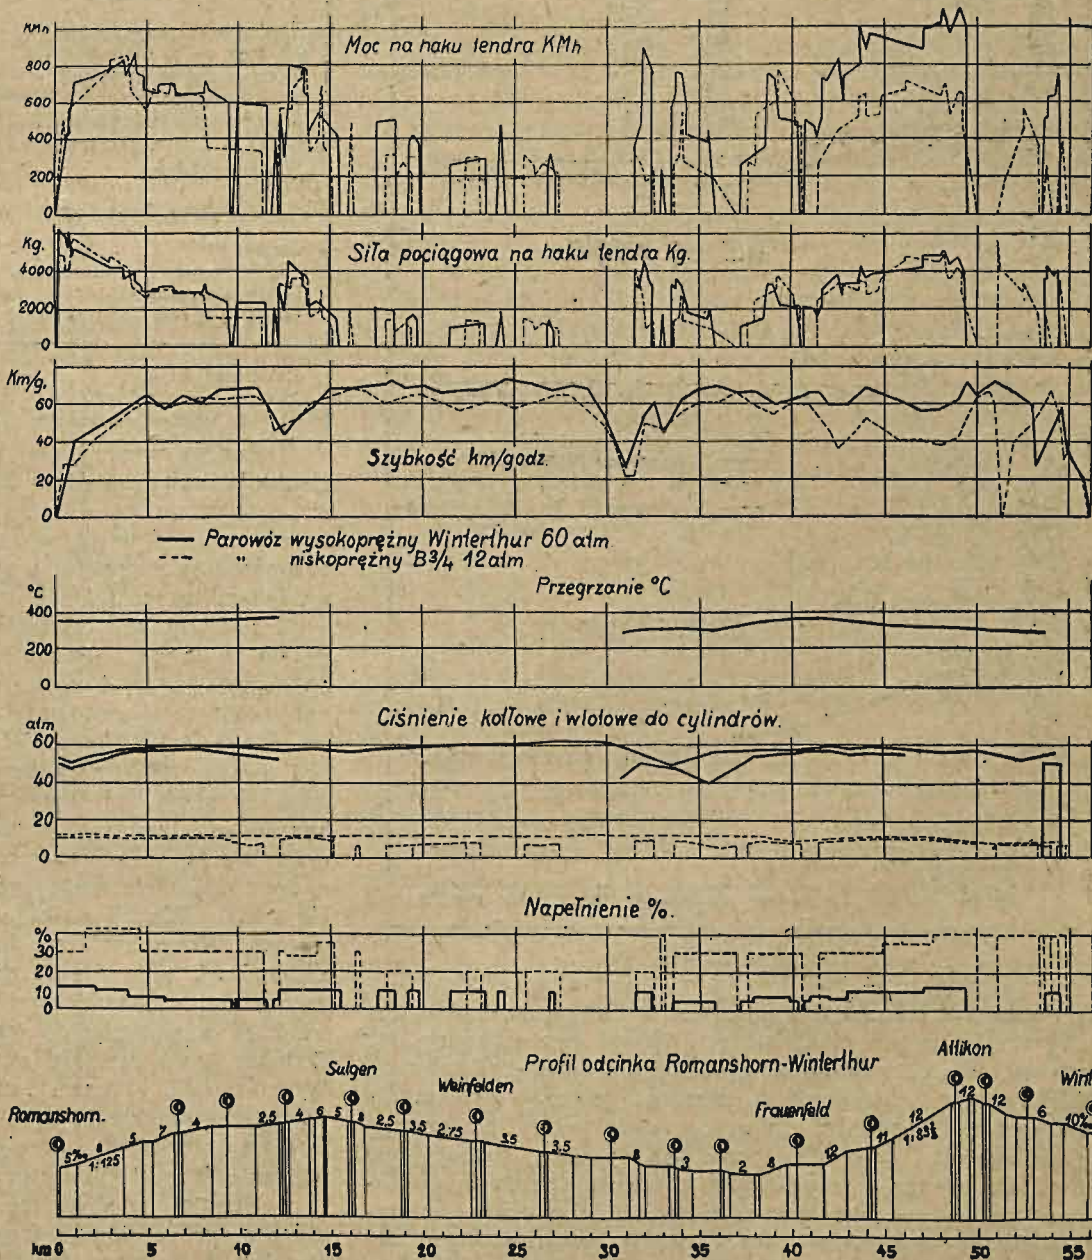 KMh
Moc na haku tendra KMh
800
600
400
200
0
Kg.
Siła pociągowa na haku tendra Kg.
4000
2000
0
Km/g.
60
40
Szybkość km/godz.
20
0
Parowóz wysokoprężny Winterthur 60 atm
" niskoprężny B3/4 12 atm
Przegrzanie °C
°C
400
200
0
Ciśnienie kotłowe i wlotowe do cylindrów.
atm
60
40
20
0
Napełnienie %.
%
30
20
10
0
Profil odcinka Romanshorn-Winterthur
Attikon
Sulgen
Weinfelden
Wint
Romanshorn.
Frauenfeld
5‰ 8 5 7 4 2,5 4 6 5 8 2,5 3,5 2,75 3,5 3,5 8 3 2 8 12 11 12 12 12 6 10%
1:125
1:83⅓
km 0 5 10 15 20 25 30 35 40 45 50 55